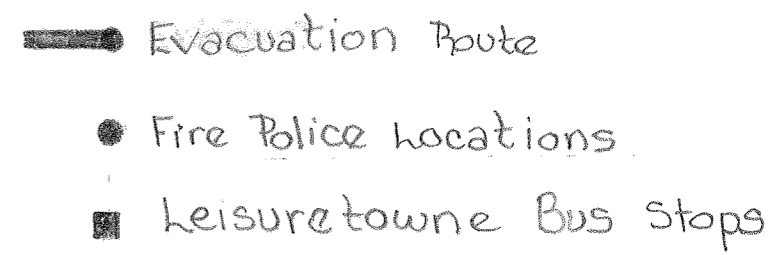 Evacuation Route
Fire Police Locations
Leisuretowne Bus Stops